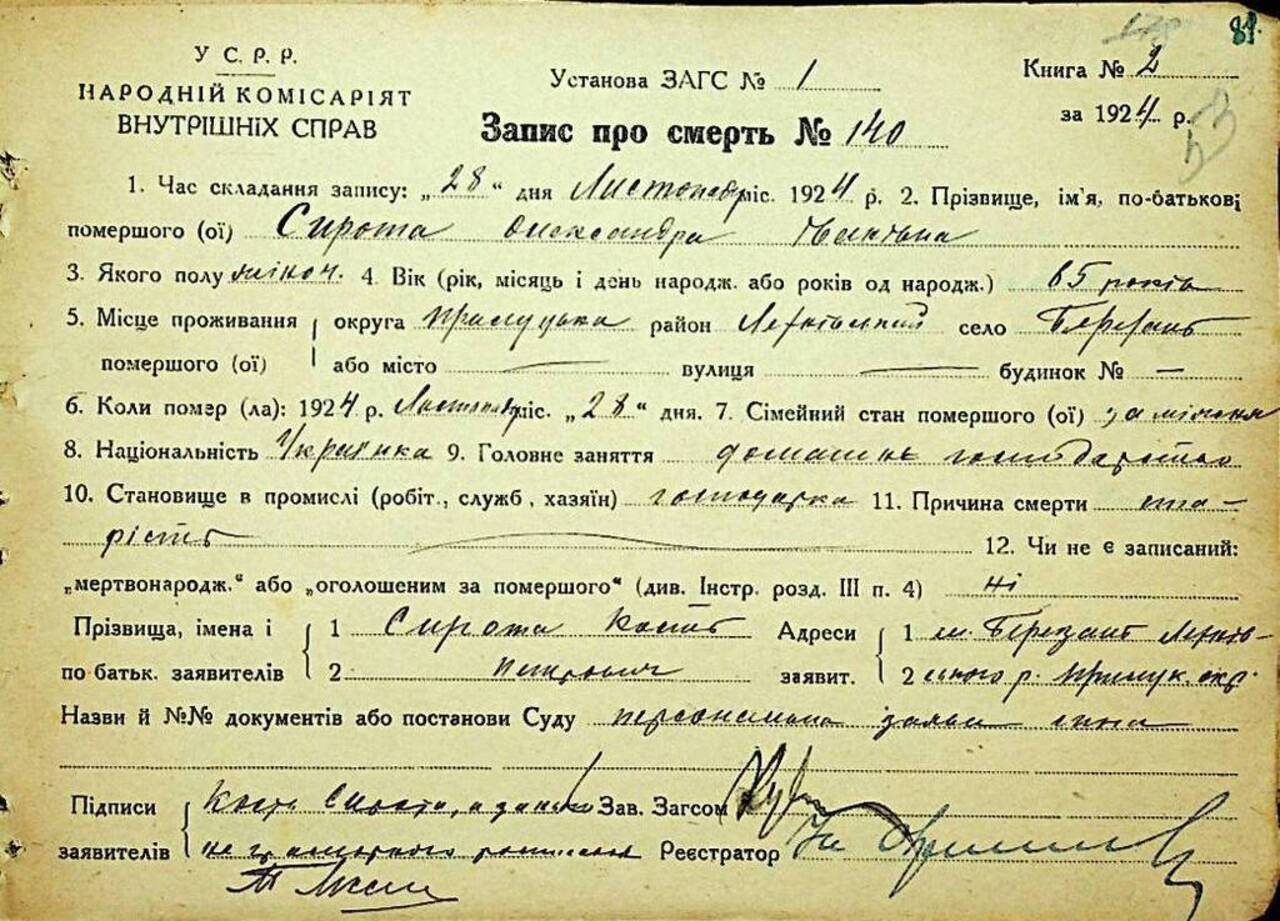 81.
У С. Р. Р.
НАРОДНІЙ КОМІСАРІЯТ
ВНУТРІШНІХ СПРАВ
Установа ЗАГС № 1
Книга № 2
за 1924 р.
53
Запис про смерть № 140
1. Час складання запису: „28“ дня Листопад міс. 1924 р. 2. Прізвище, ім'я, по-батькові
помершого (ої) Сирота Олександра Іванівна
3. Якого полу жіноч. 4. Вік (рік, місяць і день народж. або років од народж.) 65 років
5. Місце проживання помершого (ої) округа Прилуцька район село Березань
або місто — вулиця — будинок № —
6. Коли помер (ла): 1924 р. Листопад міс. „28“ дня. 7. Сімейний стан помершого (ої) заміжня
8. Національність Українка 9. Головне заняття домашнє господарство
10. Становище в промислі (робіт., служб, хазяїн) господарка 11. Причина смерти ста-
рість 12. Чи не є записаний:
„мертвонародж.“ або „оголошеним за помершого“ (див. Інстр. розд. III п. 4) ні
Прізвища, імена і по батьк. заявителів 1 Сирота Кость Адреси заявит. 1 м. Березань
2 Петрович 2 ського р. Прилук. окр.
Назви й №№ документів або постанови Суду персональна заява сина
Підписи заявителів Кость Сирота, а за Зав. Загсом
неграмотного розписався Реєстратор